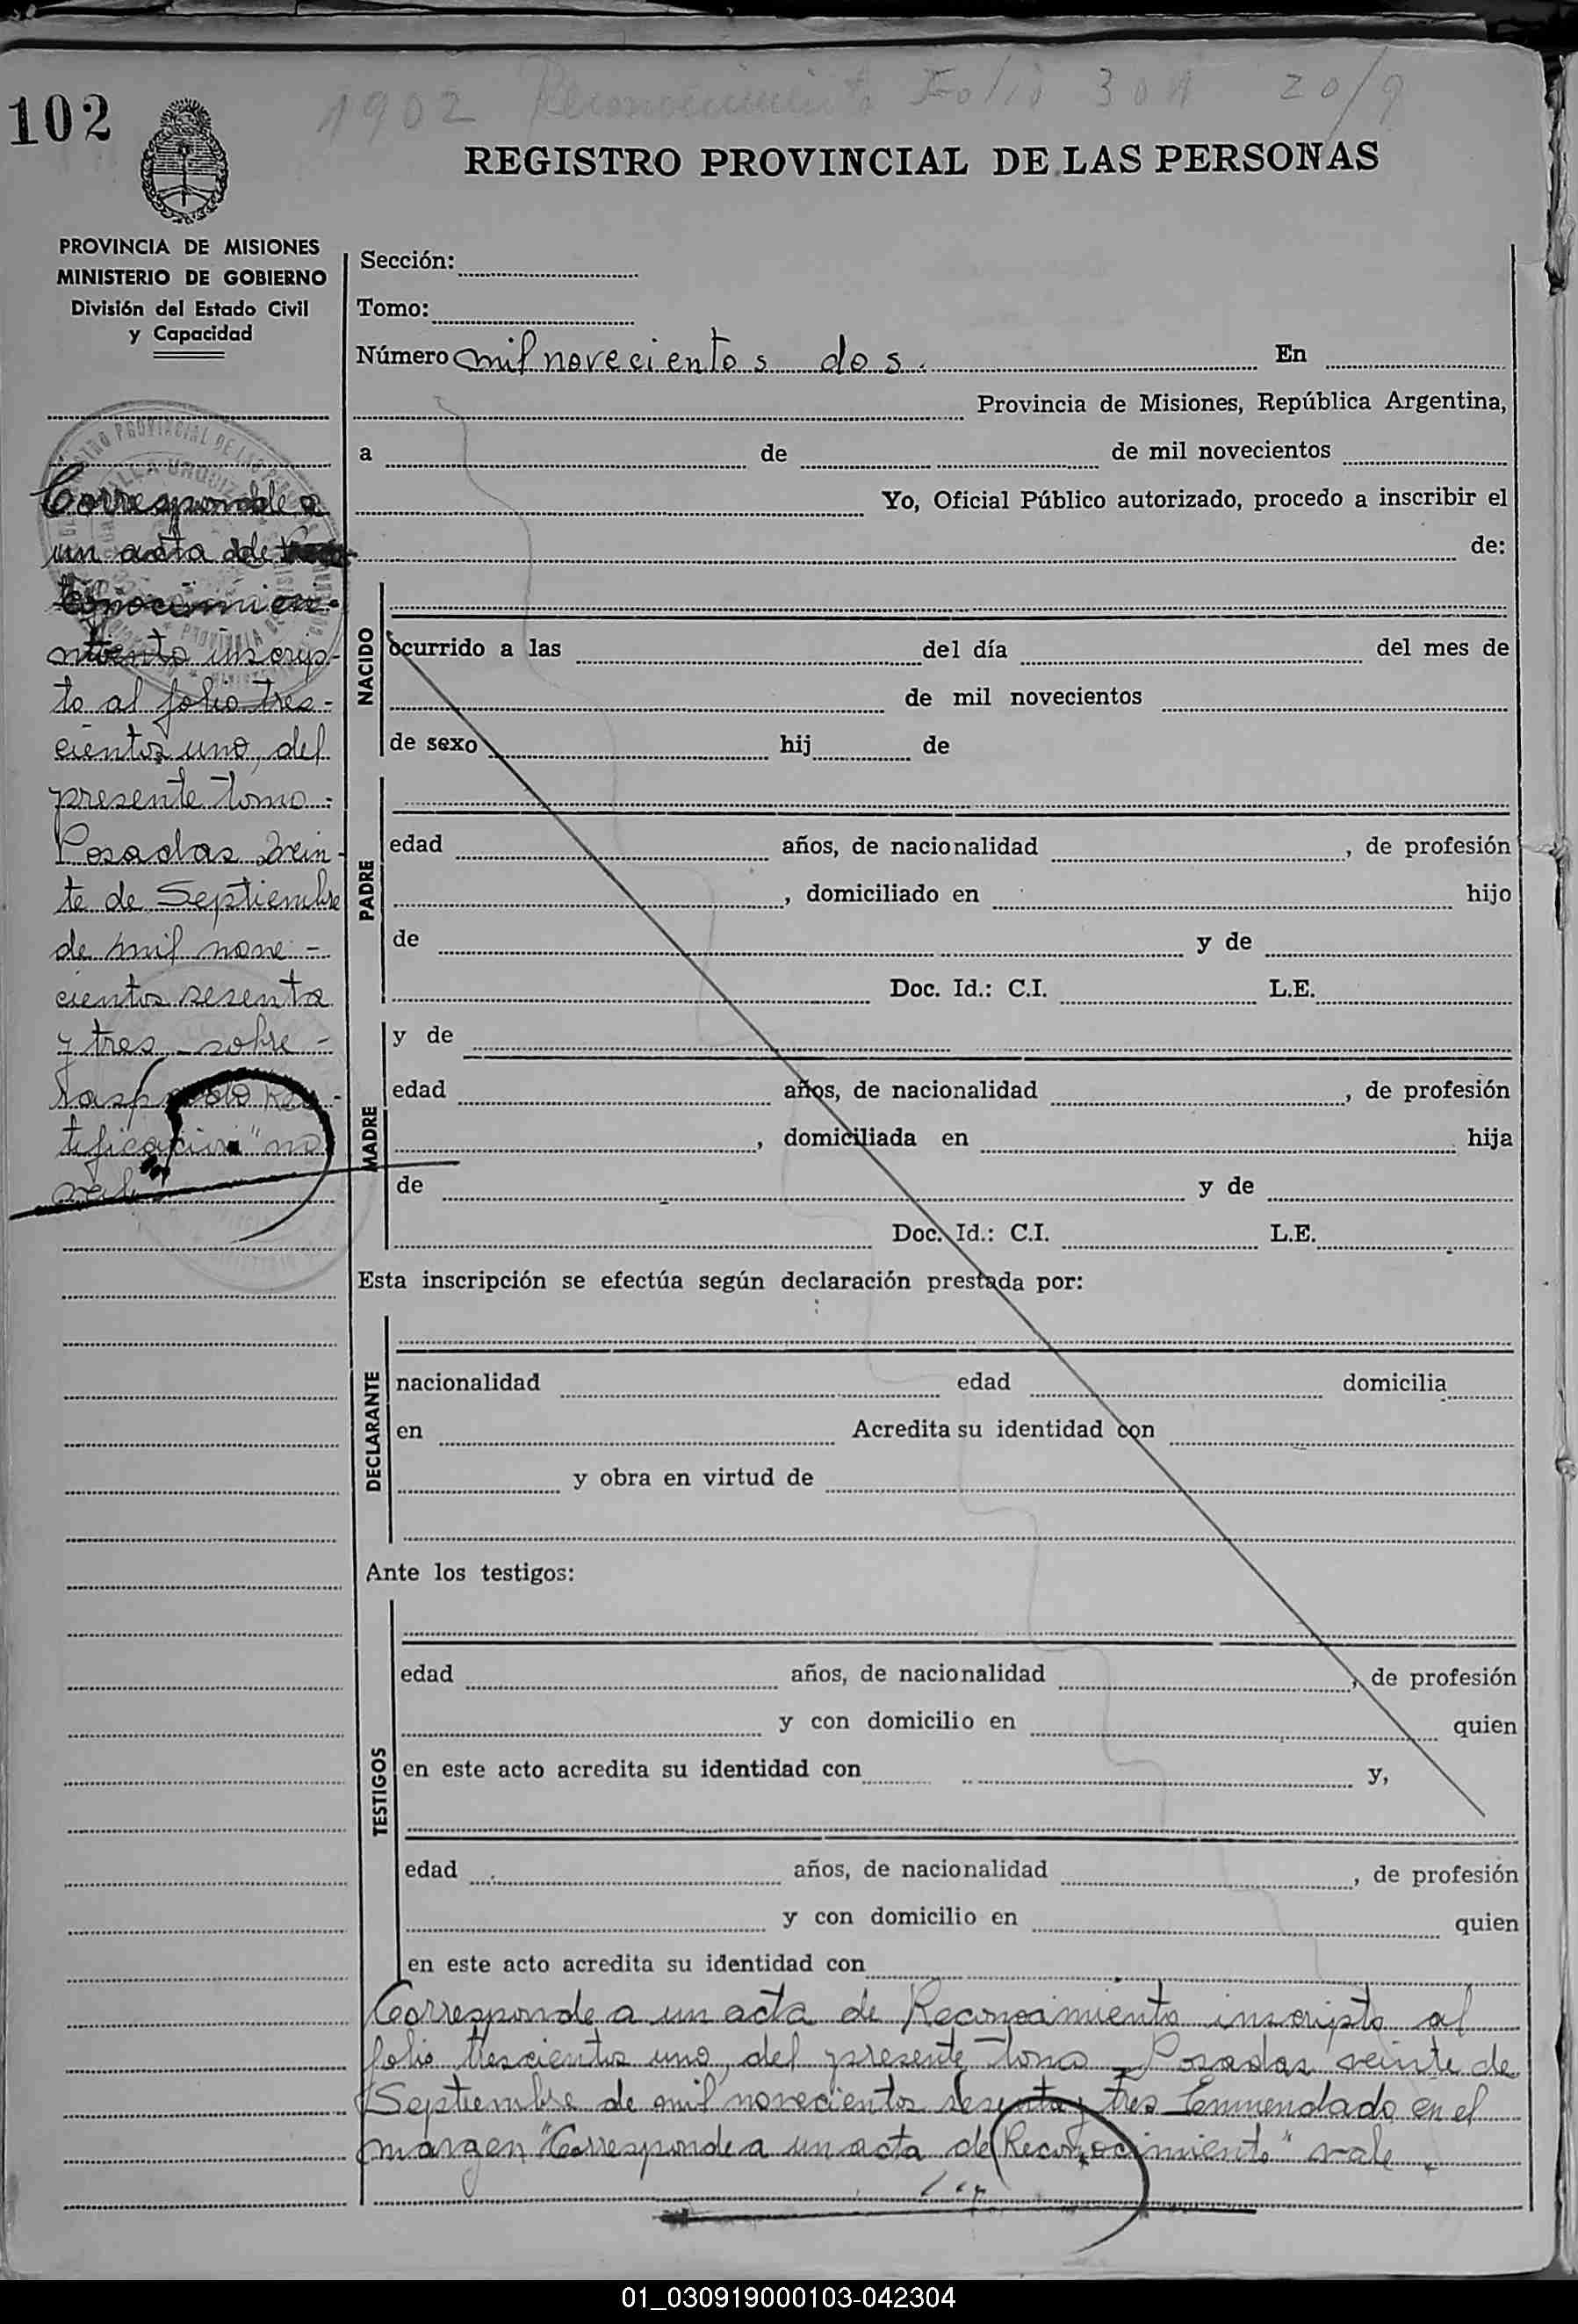 102
1902 Reconocimiento Folio 301 20/9
REGISTRO PROVINCIAL DE LAS PERSONAS
PROVINCIA DE MISIONES
MINISTERIO DE GOBIERNO
División del Estado Civil
y Capacidad
Corresponde a
un acta de
conocimien-
miento inscrip-
to al folio tres-
cientos uno, del
presente tomo.
Posadas Vein-
te de Septiembre
de mil nove-
cientos sesenta
y tres - sobre-
tificación" no
vale
Sección:
Tomo:
Número mil novecientos dos. En
Provincia de Misiones, República Argentina,
a de de mil novecientos
Yo, Oficial Público autorizado, procedo a inscribir el
de:
NACIDO
ocurrido a las del día del mes de
de mil novecientos
de sexo hij de
PADRE
edad años, de nacionalidad , de profesión
, domiciliado en hijo
de y de
Doc. Id.: C.I. L.E.
MADRE
y de
edad años, de nacionalidad , de profesión
, domiciliada en hija
de y de
Doc. Id.: C.I. L.E.
Esta inscripción se efectúa según declaración prestada por:
DECLARANTE
nacionalidad edad domicilia
en Acredita su identidad con
y obra en virtud de
Ante los testigos:
TESTIGOS
edad años, de nacionalidad , de profesión
y con domicilio en quien
en este acto acredita su identidad con y,
edad años, de nacionalidad , de profesión
y con domicilio en quien
en este acto acredita su identidad con
Corresponde a un acta de Reconocimiento inscripto al
folio trescientos uno, del presente Tomo - Posadas veinte de
Septiembre de mil novecientos sesenta y tres Enmendado en el
margen "Corresponde a un acta de Reconocimiento" vale.
01_030919000103-042304